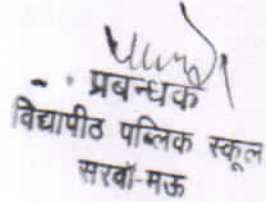 प्रबन्धक
विद्यापीठ पब्लिक स्कूल
सरवाँ-मऊ